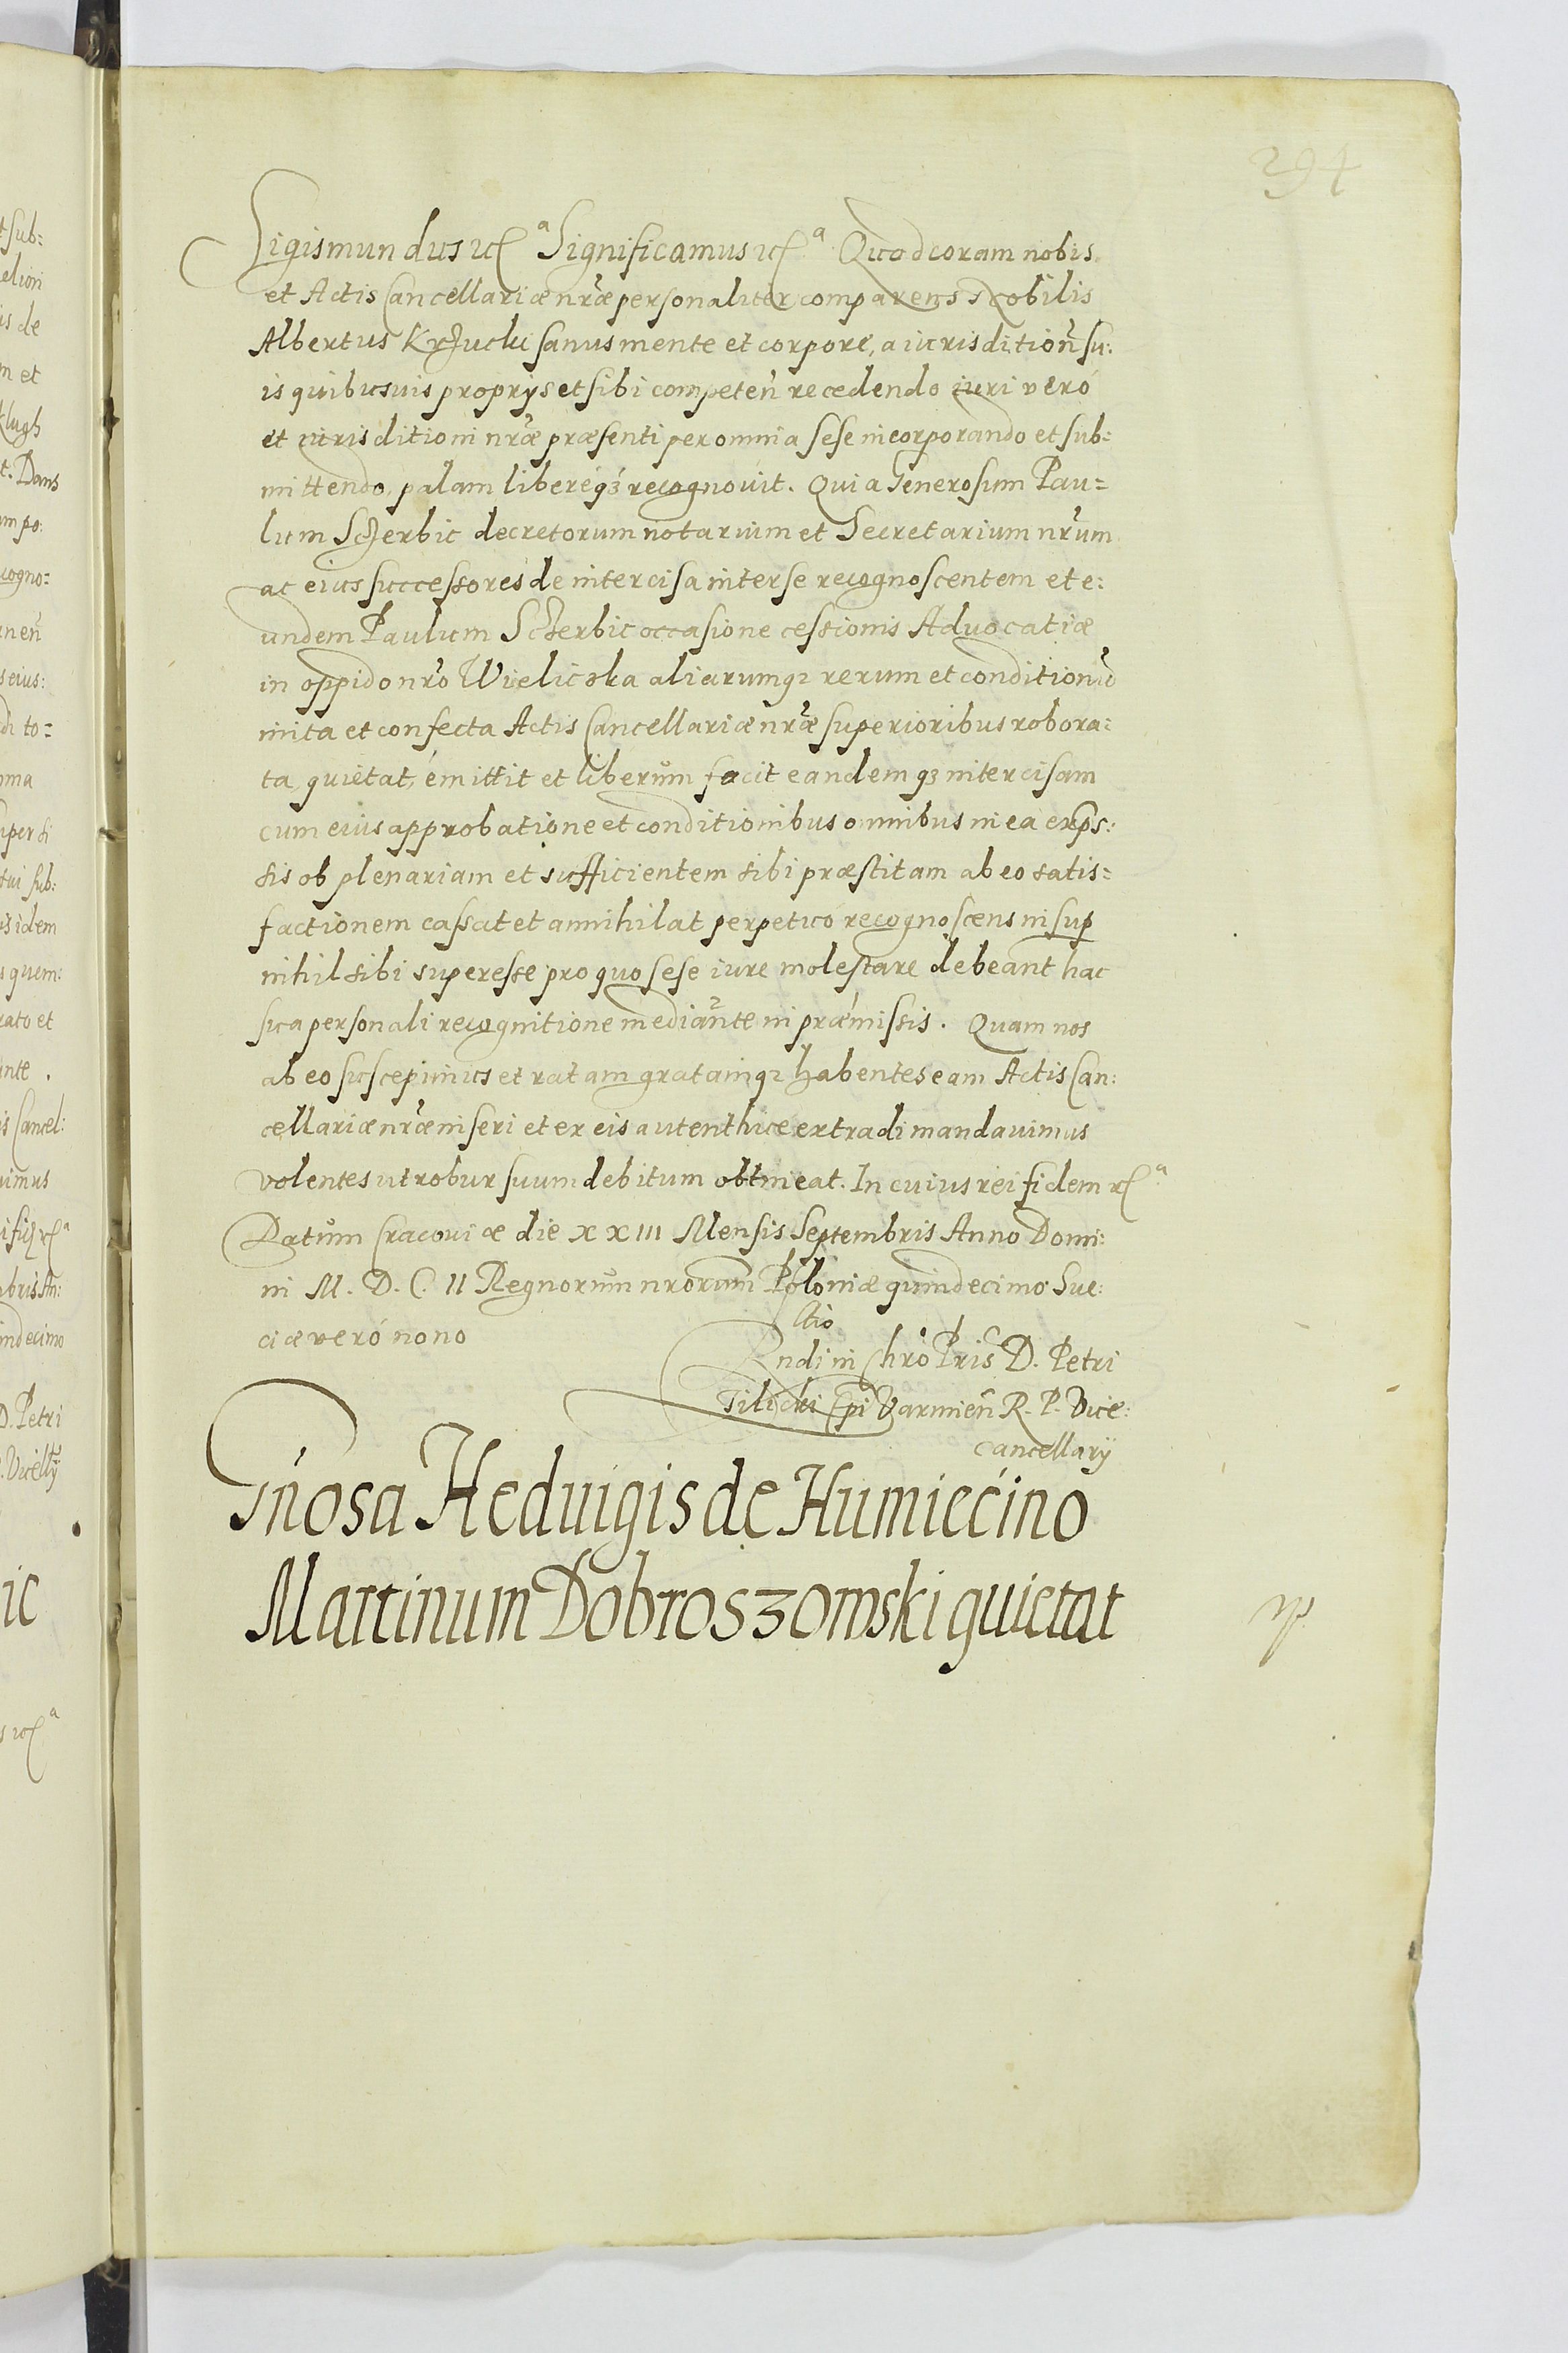 294
Sigismundus etc̃ᵃ Significamus etc̃ᵃ Quod coram nobis
et Actis Cancellariæ nr̃æ personaliter comparens Nobilis
Albertus sanus mente et corpore, a iurisdition̄ su:
is quibusuis proprijs et sibi competen̄ recedendo iuri veró
et iurisditioni nr̃æ præsenti per omnia sese incorporando et sub=
mittendo, palam libereq́ꝫ recognouit. Quia Generosum Pau=
lum Sczerbic decretorum notarium et Secretarium nr̃um
ac eius successores de intercisa inter se recognoscentem et e:
undem Paulum Sczerbic occasione cessionis Aduocatiæ
in oppido nr̃o Wieliczka aliarumqꝫ rerum et conditionũ
inita et confecta Actis Cancellariæ nr̃æ superioribus robora:
ta, quietat, emittit et liberum facit eandemqꝫ intercisam
cum eius approbatione et conditionibus omnibus in ea exp̃s:
sis ob plenariam et sufficientem sibi præstitam ab eo satis=
factionem cassat et annihilat perpetuó recognoscens insup̱
nihil sibi superesse pro quo sese iure molestare debeant hac
sua personali recognitione mediante in præmissis. Quam nos
ab eo suscepimus et ratam gratamqꝫ habentes eam Actis Can:
cellariæ nr̃æ inseri et ex eis autenthice extradi mandauimus
volentes ut robur suum debitum obtineat. In cuius rei fidem etc̃ᵃ
Datum Cracouiæ die XXIII Mensis Septembris Anno Domi:
ni M. D. C. II Regnorum nrorum Poloniæ quindecimo Sue:
ciæ veró nono
Rñdi in Chro Pris D. Petri
Tilicki Epi Varmien̄ R. P. Vice:
cancellarÿ
Gñosa Heduigis de Humiecino
Martinum Dobroszowski quietat